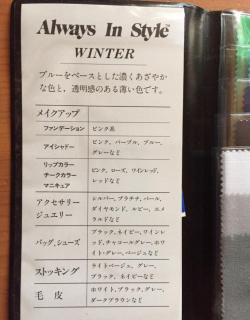 Always In Style
WINTER
ブルーをベースとした濃くあざやか
な色と，透明感のある薄い色です。
メイクアップ
ファンデーション ピンク系
アイシャドー ピンク、パープル、ブルー、
グレーなど
リップカラー
チークカラー
マニキュア
ピンク、ローズ、ワインレッド、
レッドなど
アクセサリー
ジュエリー
シルバー、プラチナ、パール、
ダイヤモンド、ルビー、エメ
ラルドなど
バッグ、シューズ
ブラック、ネイビー、ワインレ
ッド、チャコールグレー、ホワ
イト・グレー、ベージュなど
ストッキング
ライトベージュ、グレー、
ブラック、ネイビーなど
毛皮
ホワイト、ブラック、グレー、
ダークブラウンなど